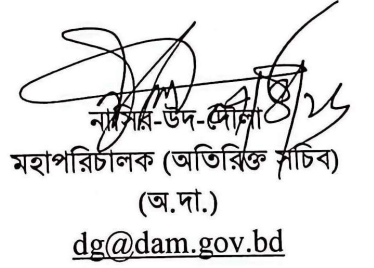 নাসির-উদ-দৌলা
মহাপরিচালক (অতিরিক্ত সচিব)
(অ.দা.)
dg@dam.gov.bd